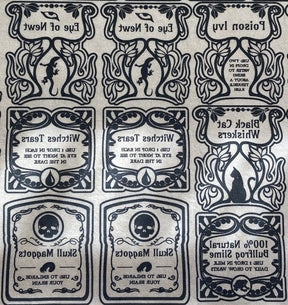 Eye of Newt
Eye of Newt
Poison Ivy
USE TWO
DROPS IN
DRINK TO
BRING
ABOUT A
TERRIBLE
Witches Tears
USE 1 DROP IN EACH
EYE AT NIGHT TO SEE
IN THE DARK
Witches Tears
USE 1 DROP IN EACH
EYE AT NIGHT TO SEE
IN THE DARK
Black Cat
Whiskers
Skull Maggots
USE TO ENLARGE
YOUR BRAIN
Skull Maggots
USE TO ENLARGE
YOUR BRAIN
100% Natural
Bullfrog
Slime
USE 1 DROP IN MILK
DAILY TO GROW WARTS